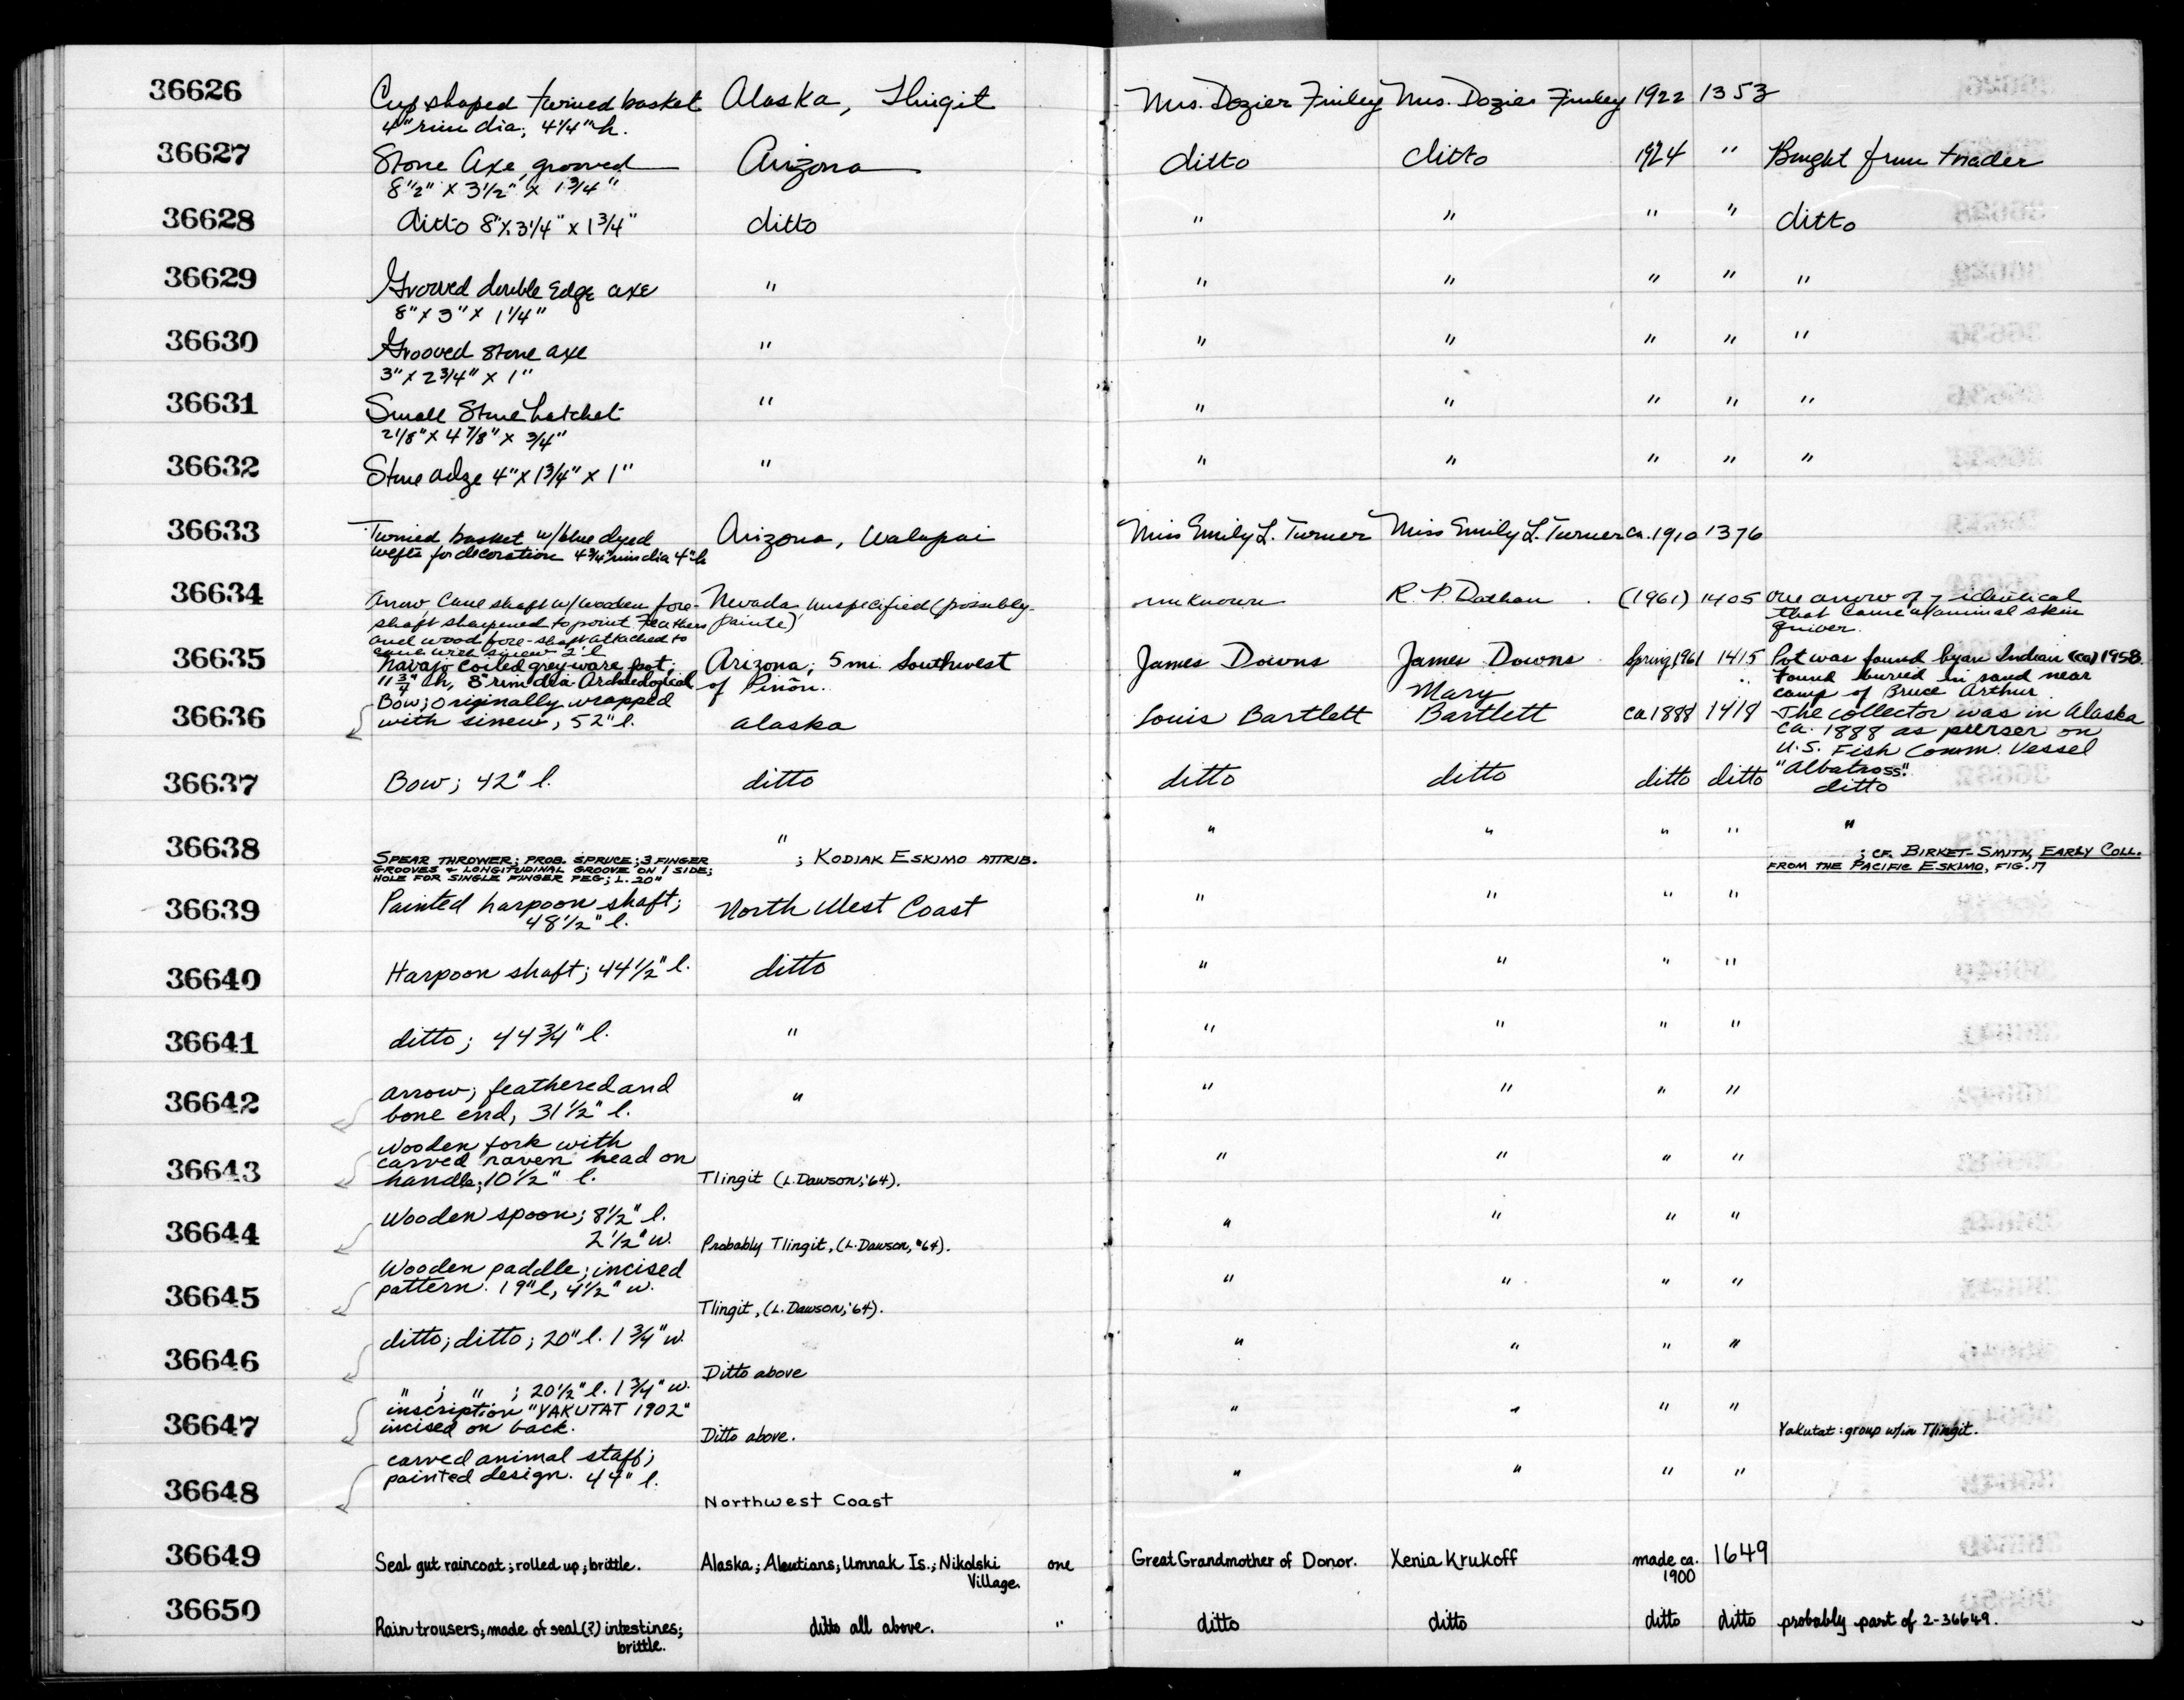 36626 Cup shaped twined basket Alaska, Tlingit Mrs. Dozier Finley Mrs. Dozier Finley 1922 1353
4" rim dia; 4 1/4" h.
36627 Stone Axe, grooved Arizona ditto ditto 1924 " Bought from trader
8 1/2" x 3 1/2" x 1 3/4"
36628 ditto 8" x 3 1/4" x 1 3/4" ditto " " " " ditto
36629 Grooved double edge axe " " " " " "
8" x 3" x 1 1/4"
36630 Grooved stone axe " " " " " "
3" x 2 3/4" x 1"
36631 Small Stone hatchet " " " " " "
2 1/8" x 4 7/8" x 3/4"
36632 Stone adze 4" x 1 3/4" x 1" " " " " " "
36633 Twined basket w/blue dyed Arizona, Walapai Miss Emily L. Turner Miss Emily L. Turner ca. 1910 1376
wefts for decoration 4 3/4" rim dia 4" h
36634 Arrow, Cane shaft w/wooden fore- Nevada, unspecified (possibly unknown R. P. Dathan (1961) 1405 One arrow of 7 identical
shaft sharpened to point. Feathers Paiute) that came w/animal skin
and wood fore-shaft attached to quiver.
cane with sinew 2' l
36635 Navajo coiled greyware pot; Arizona; 5 mi. Southwest James Downs James Downs Spring 1961 1415 Pot was found by an Indian (ca) 1958.
11 3/4" h, 8" rim dia. Archaeological of Piñon. Found buried in sand near
camp of Bruce Arthur
36636 Bow; originally wrapped Alaska Louis Bartlett Mary Bartlett ca 1888 1418 The collector was in Alaska
with sinew, 52" l. ca. 1888 as purser on
U.S. Fish Comm. Vessel
"Albatross".
36637 Bow; 42" l. ditto ditto ditto ditto ditto ditto
36638 SPEAR THROWER; PROB. SPRUCE; 3 FINGER " ; KODIAK ESKIMO ATTRIB. " " " " " ; CF. BIRKET-SMITH, EARLY COLL.
GROOVES & LONGITUDINAL GROOVE ON 1 SIDE; FROM THE PACIFIC ESKIMO, FIG. 17
HOLE FOR SINGLE FINGER PEG; L. 20"
36639 Painted harpoon shaft; North West Coast " " " "
48 1/2" l.
36640 Harpoon shaft; 44 1/2" l. ditto " " " "
36641 ditto; 44 3/4" l. " " " " "
36642 arrow; feathered and " " " " "
bone end, 31 1/2" l.
36643 Wooden fork with " " " "
carved raven head on
handle; 10 1/2" l. Tlingit (L. Dawson, '64).
36644 Wooden spoon; 8 1/2" l. " " " "
2 1/2" w. Probably Tlingit, (L. Dawson, '64).
36645 Wooden paddle; incised " " " "
pattern. 19" l, 4 1/2" w.
Tlingit, (L. Dawson, '64).
36646 ditto; ditto; 20" l. 1 3/4" w. " " " "
Ditto above
36647 " ; " ; 20 1/2" l. 1 3/4" w. " " " "
inscription "YAKUTAT 1902"
incised on back. Ditto above. Yakutat: group w/in Tlingit.
36648 carved animal staff; " " " "
painted design. 44" l.
Northwest Coast
36649 Seal gut raincoat; rolled up; brittle. Alaska; Aleutians; Umnak Is.; Nikolski one Great Grandmother of Donor. Xenia Krukoff made ca. 1649
Village. 1900
36650 Rain trousers; made of seal (?) intestines; ditto all above. " ditto ditto ditto ditto probably part of 2-36649.
brittle.